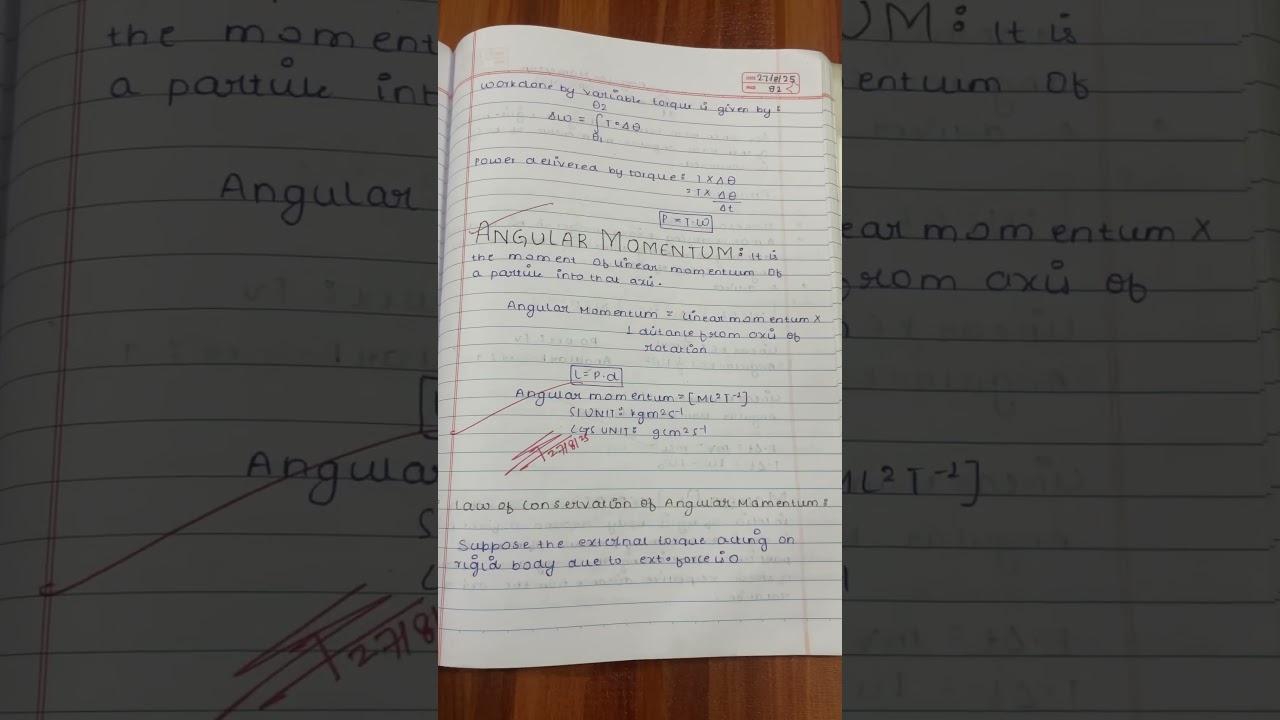 27/8/25
82
Workdone by variable torque is given by:
θ2
ΔW = ∫ T·Δθ
θ1
Power delivered by torque: T×Δθ
= T× Δθ
Δt
P = T·ω
ANGULAR MOMENTUM: It is
the moment of linear momentum of
a particle into that axis.
Angular Momentum = Linear momentum ×
⊥ distance from axis of
rotation
L = P·d
Angular momentum = [ML²T⁻¹]
SI UNIT: kgm²s⁻¹
CGS UNIT: gcm²s⁻¹
27/8/25
Law of Conservation of Angular Momentum:
Suppose the external torque acting on
rigid body due to ext. force is 0